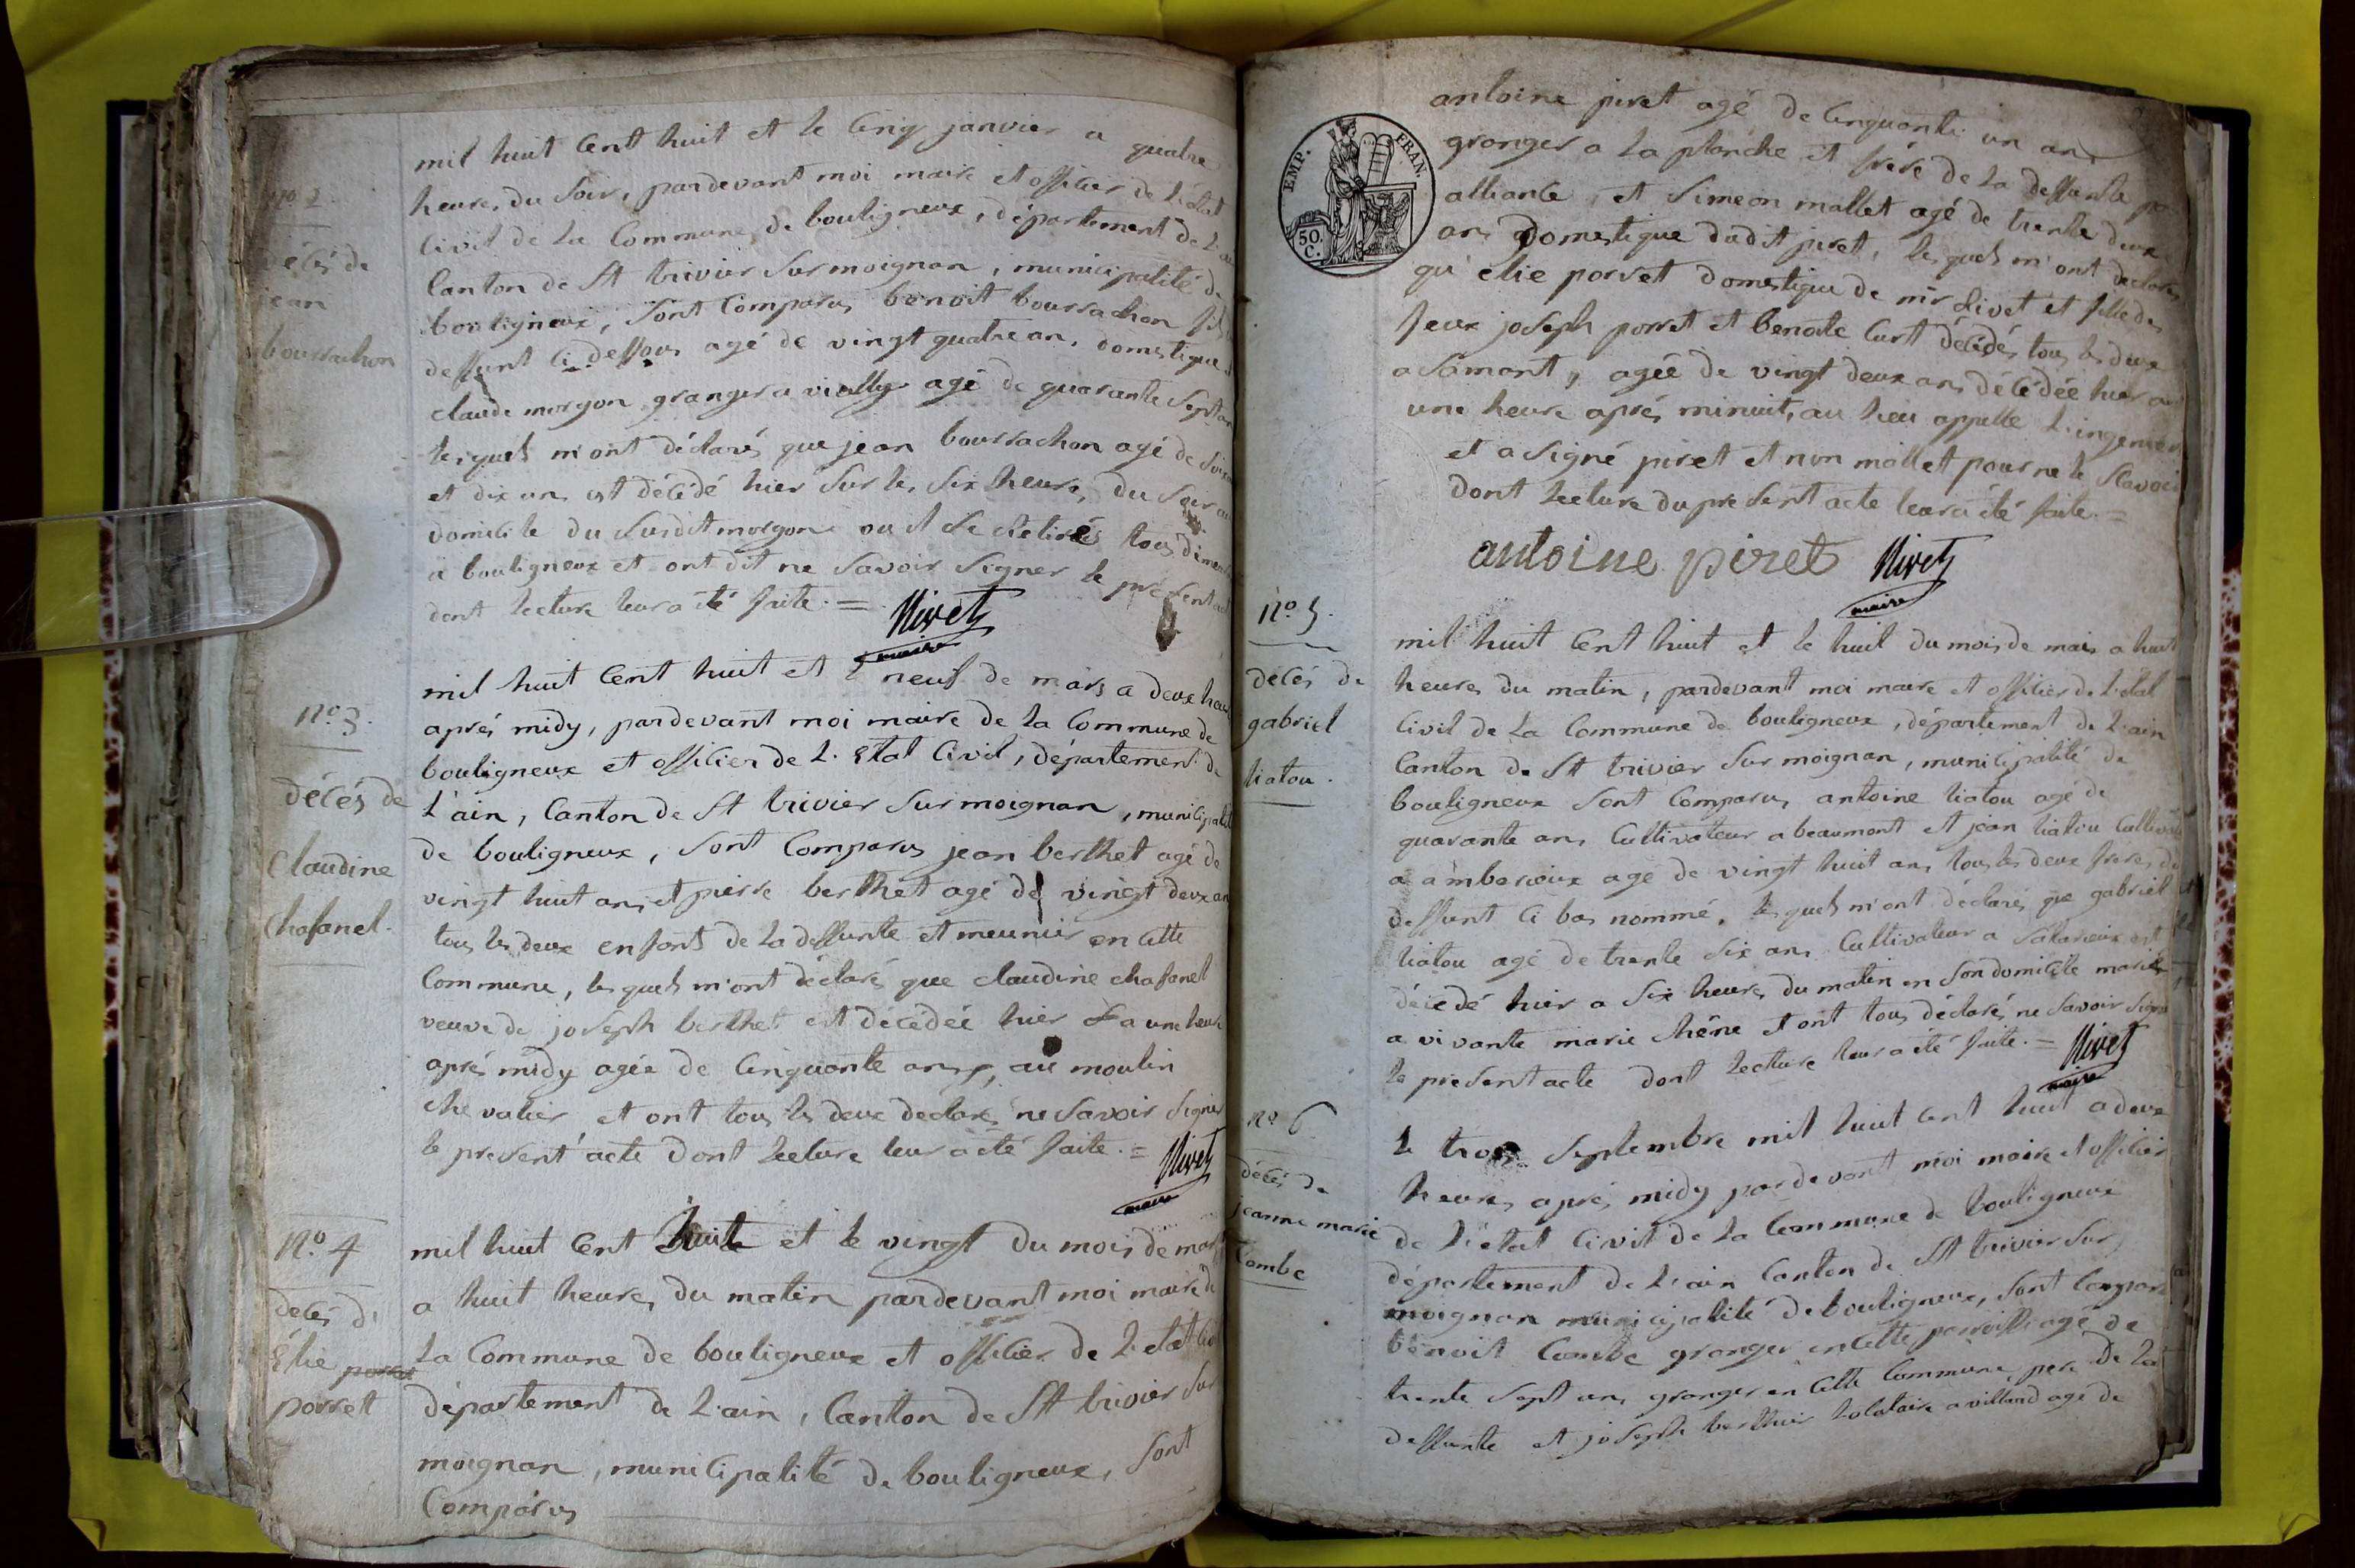 no 2
décés de
jean
bourrachon
mil huit cent huit et le cinq janvier a quatre
heures du soir, pardevant moi maire et officier de l'état
civil de la commune de bouligneux, département de l'ain
canton de St trivier sur moignan, municipalité de
bouligneux, sont comparus benoit bourrachon fils
deffunt ci dessous agé de vingt quatre ans, domestique et
claude morgon granger a vially agé de quarante sept ans
lesquels m'ont déclarés que jean bourrachon agé de soix
et dix ans est décédé hier sur les six heures, du soir au
domicile du susdit morgon ou il se retirés tous
a bouligneux et ont dit ne savoir signer le présent acte
dont lecture leur a été faite. =
Nivet
maire
no 3.
décés de
Claudine
Chafanel.
mil huit cent huit et neuf de mars a deux heures
aprés midy, pardevant moi maire de la commune de
bouligneux et officier de l. Etat civil, département de
l'ain, canton de St trivier sur moignan, municipalité
de bouligneux, sont comparus jean berthet agé de
vingt huit ans et pierre berthet agé de vingt deux ans
tous les deux enfants de la deffunte et meunier en cette
commune, lesquels m'ont déclaré que claudine chafanel
veuve de joseph berthet est décédée hier a une heure
aprés midy agée de cinquante ans, au moulin
chevalier, et ont tous les deux déclarés ne savoir signer
le present acte dont lecture leur a été faite. =
Nivet
maire
No. 4
décés d'
Élie porret
porret
mil huit cent huit et le vingt du mois de mars
a huit heures du matin pardevant moi maire de
la commune de bouligneux et officier de l'etat civil
département de l'ain, canton de St trivier sur
moignan, municipalité de bouligneux, sont
comparus
EMP. FRAN.
50.
C.
antoine piret agé de cinquante un ans
granger a la planche et frére de la deffunte par
alliance, et simeon mallet agé de trente deux
ans domestique dudit piret, lesquels m'ont declarés
qu'elie porret domestique de mr Livet et fille des
feux joseph porret et benoite curt décédés tous les deux
a Samant, agée de vingt deux ans décédée hier au
une heure aprés minuit, au lieu appellé
et a signé piret et non mallet pour ne le sçavoir
dont lecture du present acte leur a été faite. =
antoine piret Nivet
maire
no. 5.
décés de
gabriel
liatou.
mil huit cent huit et le huit du mois de mais a huit
heures du matin, pardevant moi maire et officier de l'etat
civil de la commune de bouligneux, département de l'ain
canton de St trivier sur moignan, municipalité de
bouligneux sont comparus antoine liatou agé de
quarante ans cultivateur a beaumont et jean liatou cultivateur
a amberieux agé de vingt huit ans tous les deux freres du
deffunt ci bas nommé, lesquels m'ont déclarés que gabriel
liatou agé de trente six ans cultivateur a est
décédé hier a six heures du matin en son domicile mariés
a vivante marie chêne et ont tous déclarés ne savoir signer
le present acte dont lecture leur a été faite. = Nivet
maire
no 6
décés de
jeanne marie
Combe
le trois septembre mil huit cent huit a deux
heures aprés midy pardevant moi maire et officier
de l'état civil de la commune de bouligneux
département de l'ain canton de St trivier sur
moignan municipalité de bouligneux, sont comparus
benoit combe granger en cette parroisse agé de
trente sept ans granger en cette commune, pere de la
deffunte et joseph berthier agé de